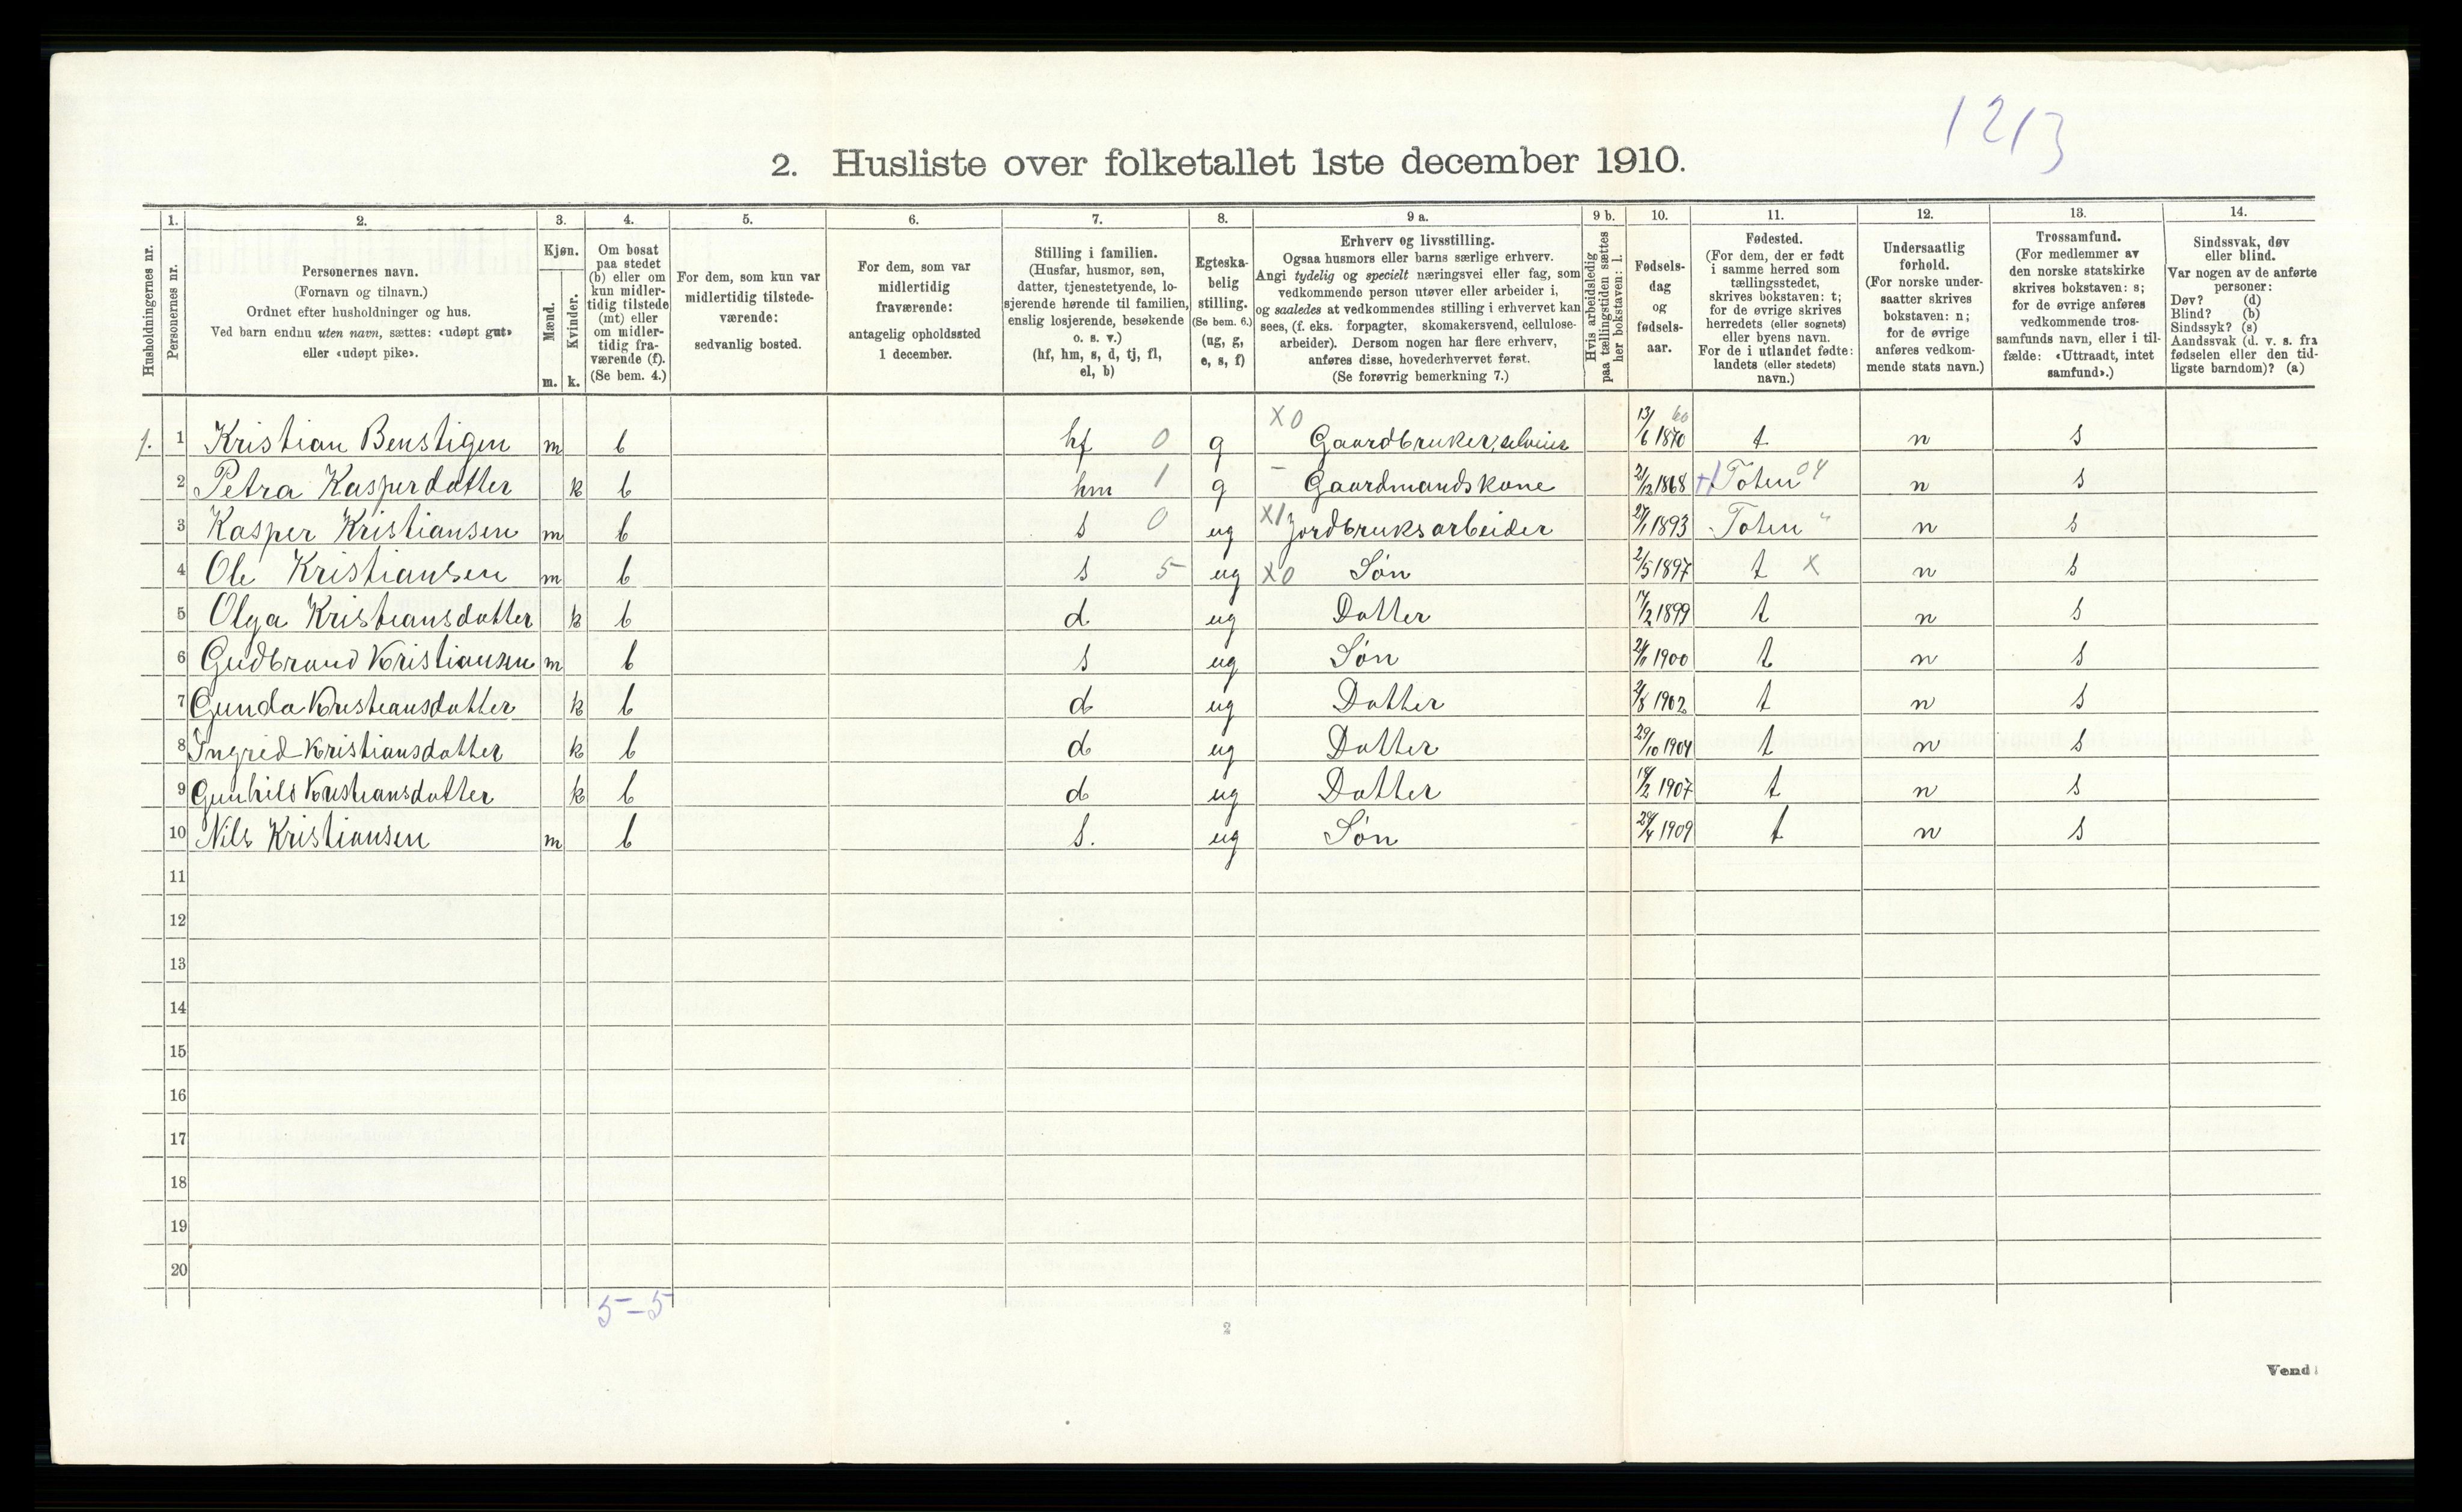 1213
2. Husliste over folketallet 1ste december 1910.
1. 2. 3. 4. 5. 6. 7. 8. 9 a. 9 b. 10. 11. 12. 13. 14.
Husholdningernes nr.
Personernes nr.
Personernes navn.
(Fornavn og tilnavn.)
Ordnet efter husholdninger og hus.
Ved barn endnu uten navn, sættes: «udøpt gut»
eller «udøpt pike».
Kjøn.
Mænd.
Kvinder.
m. k.
Om bosat
paa stedet
(b) eller om
kun midler-
tidig tilstede
(mt) eller
om midler-
tidig fra-
værende (f).
(Se bem. 4.)
For dem, som kun var
midlertidig tilstede-
værende:
sedvanlig bosted.
For dem, som var
midlertidig
fraværende:
antagelig opholdssted
1 december.
Stilling i familien.
(Husfar, husmor, søn,
datter, tjenestetyende, lo-
sjerende hørende til familien,
enslig losjerende, besøkende
o. s. v.)
(hf, hm, s, d, tj, fl,
el, b)
Egteska-
belig
stilling.
(Se bem. 6.)
(ug, g,
e, s, f)
Erhverv og livsstilling.
Ogsaa husmors eller barns særlige erhverv.
Angi tydelig og specielt næringsvei eller fag, som
vedkommende person utøver eller arbeider i,
og saaledes at vedkommendes stilling i erhvervet kan
sees, (f. eks. forpagter, skomakersvend, cellulose-
arbeider). Dersom nogen har flere erhverv,
anføres disse, hovederhvervet først.
(Se forøvrig bemerkning 7.)
Hvis arbeidsledig
paa tællingstiden sættes
her bokstaven: l.
Fødsels-
dag
og
fødsels-
aar.
Fødested.
(For dem, der er født
i samme herred som
tællingsstedet,
skrives bokstaven: t;
for de øvrige skrives
herredets (eller sognets)
eller byens navn.
For de i utlandet fødte:
landets (eller stedets)
navn.)
Undersaatlig
forhold.
(For norske under-
saatter skrives
bokstaven: n;
for de øvrige
anføres vedkom-
mende stats navn.)
Trossamfund.
(For medlemmer av
den norske statskirke
skrives bokstaven: s;
for de øvrige anføres
vedkommende tros-
samfunds navn, eller i til-
fælde: «Uttraadt, intet
samfund».)
Sindssvak, døv
eller blind.
Var nogen av de anførte
personer:
Døv? (d)
Blind? (b)
Sindssyk? (s)
Aandssvak (d. v. s. fra
fødselen eller den tid-
ligste barndom)? (a)
1. 1 Kristian Benstigen m b hf 0 g X0 Gaardbruker, selveier 13/6 1870 60 t n s
2 Petra Kasperdatter k b hm 1 g – Gaardmandskone 21/12 1868 Toten 04 n s
3 Kasper Kristiansen m b s 0 ug X1 Jordbruksarbeider 1893 Toten " n s
4 Ole Kristiansen m b s 5 ug X0 Søn 2/5 1897 t X n s
5 Olga Kristiansdatter k b d ug Datter 17/2 1899 t n s
6 Gudbrand Kristiansen m b s ug Søn 1900 t n s
7 Gunda Kristiansdatter k b d ug Datter 2/8 1902 t n s
8 Ingrid Kristiansdatter k b d ug Datter 29/10 1904 t n s
9 Gunhild Kristiansdatter k b d ug Datter 18/2 1907 t n s
10 Nils Kristiansen m b s. ug Søn 1909 t n s
11
12
13
14
15
16
17
18
19
20
5-5
2
Vend